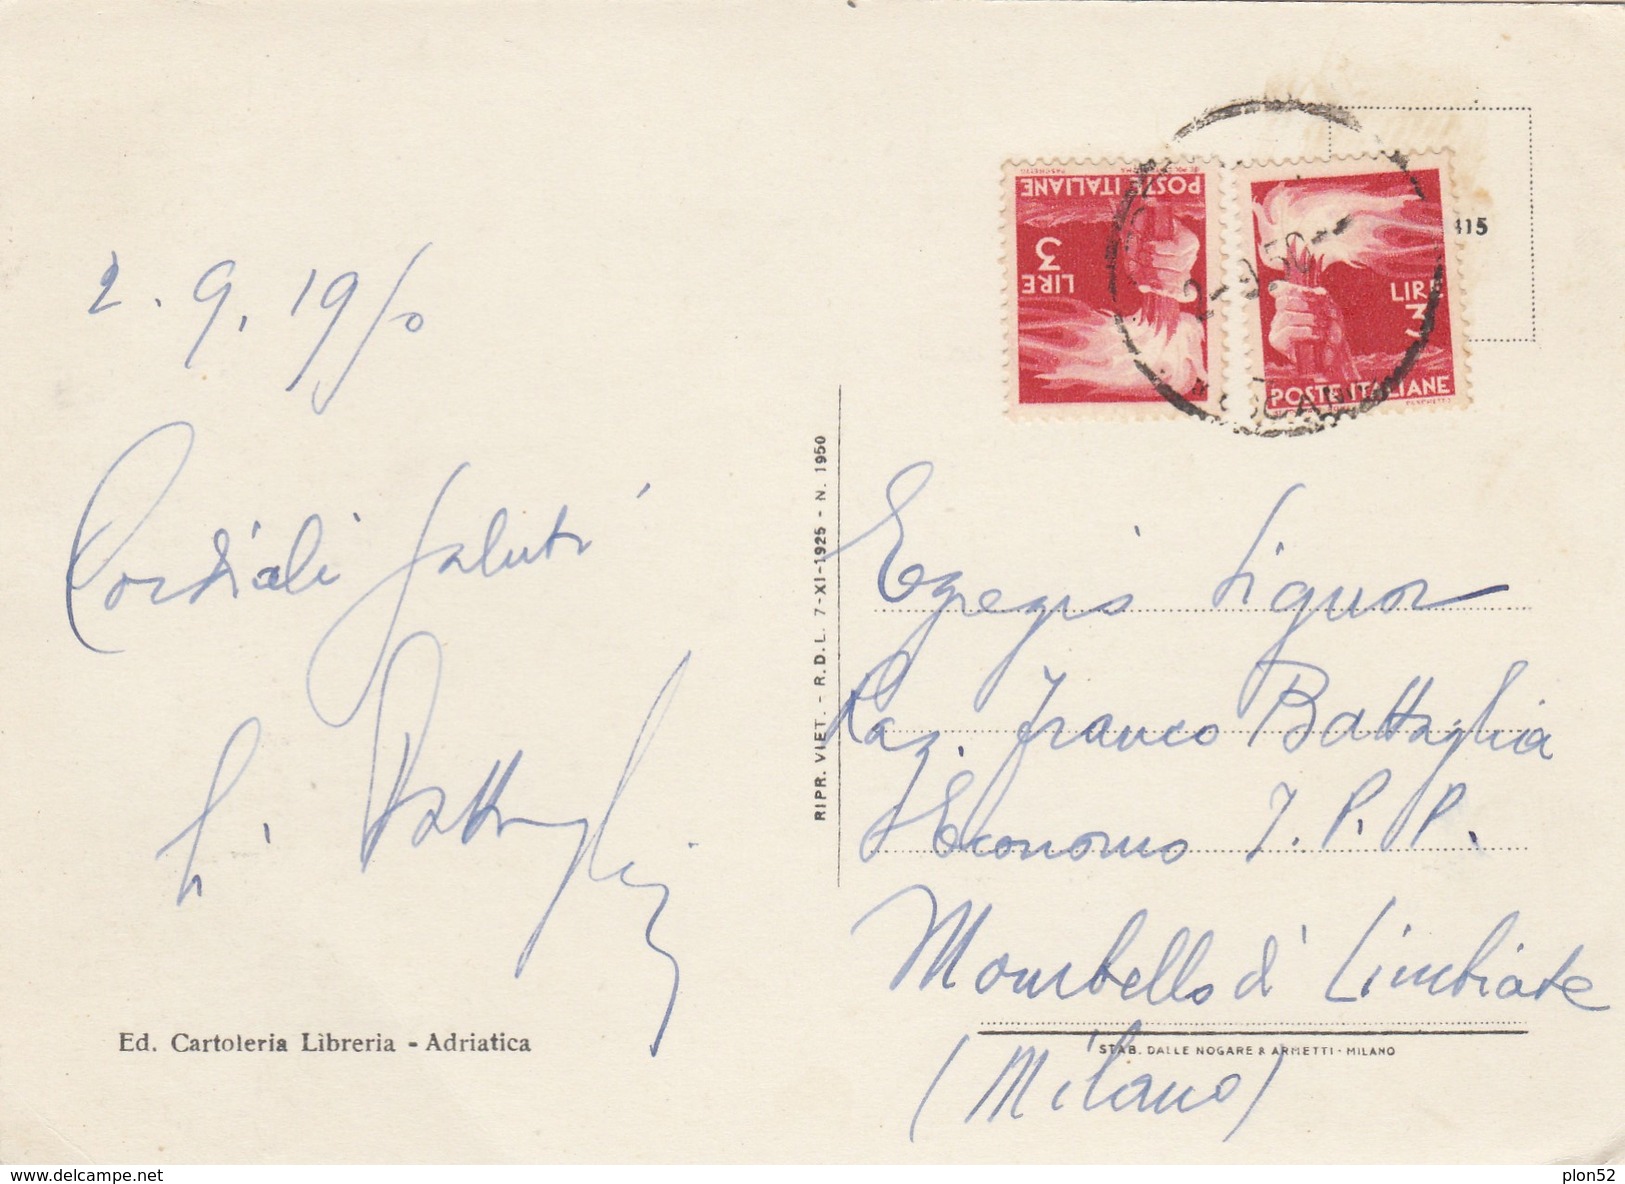 2.9.1950
Cordiali saluti
Battaglia
Ed. Cartoleria Libreria - Adriatica
RIPR. VIET. - R.D.L. 7-XI-1925 - N. 1950
POSTE ITALIANE
LIRE 3
LIRE 3
POSTE ITALIANE
2-9.50
415
Egregio Signor
Rag. Franco Battaglia
Economo I.P.P.
Mombello di Limbiate
(Milano)
STAB. DALLE NOGARE & ARMETTI - MILANO
plon52